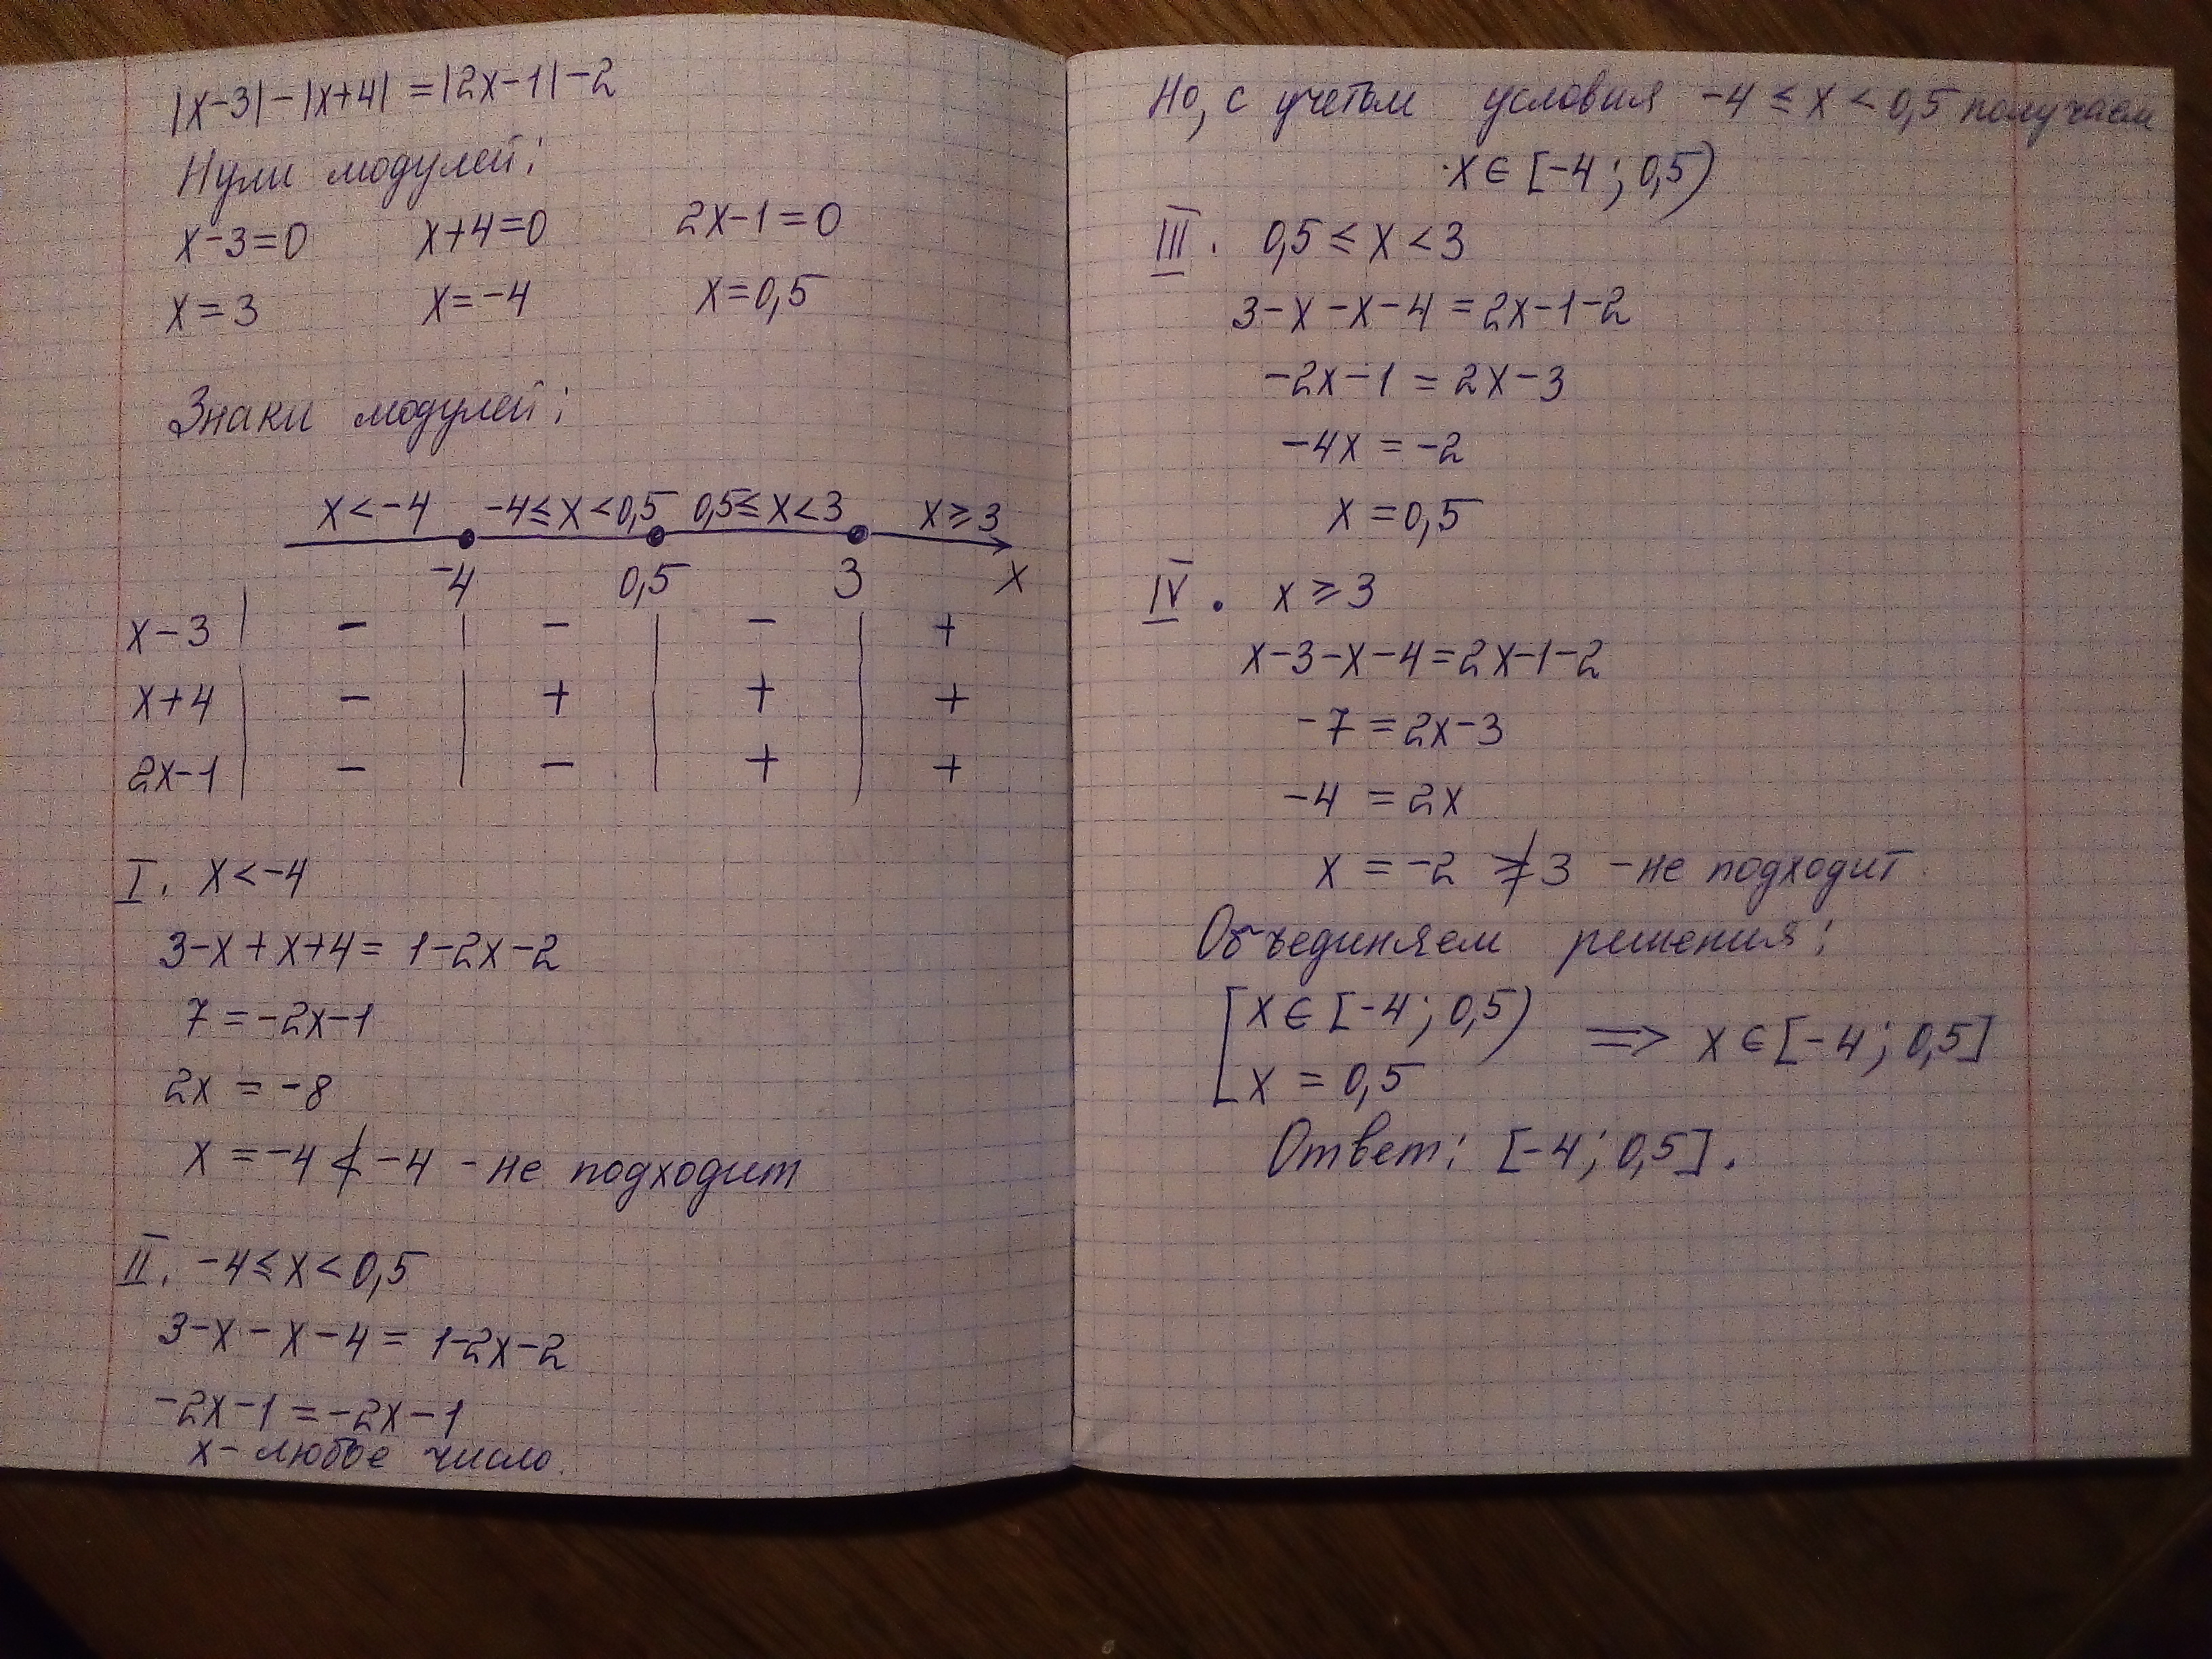 |x-3|-|x+4|=|2x-1|-2
Нули модулей:
x-3=0 x+4=0 2x-1=0
x=3 x=-4 x=0,5
Знаки модулей:
x<-4 -4≤x<0,5 0,5≤x<3 x≥3
-4 0,5 3 x
x-3 | - | - | - | +
x+4 | - | + | + | +
2x-1 | - | - | + | +
I. x<-4
3-x+x+4=1-2x-2
7=-2x-1
2x=-8
x=-4≮-4 - не подходит
II. -4≤x<0,5
3-x-x-4=1-2x-2
-2x-1=-2x-1
x- любое число.
Но, с учетом условия -4≤x<0,5 получаем
x∈[-4;0,5)
III. 0,5≤x<3
3-x-x-4=2x-1-2
-2x-1=2x-3
-4x=-2
x=0,5
IV. x≥3
x-3-x-4=2x-1-2
-7=2x-3
-4=2x
x=-2≱3 - не подходит.
Объединяем решения:
[x∈[-4;0,5)
x=0,5 => x∈[-4;0,5]
Ответ: [-4;0,5].